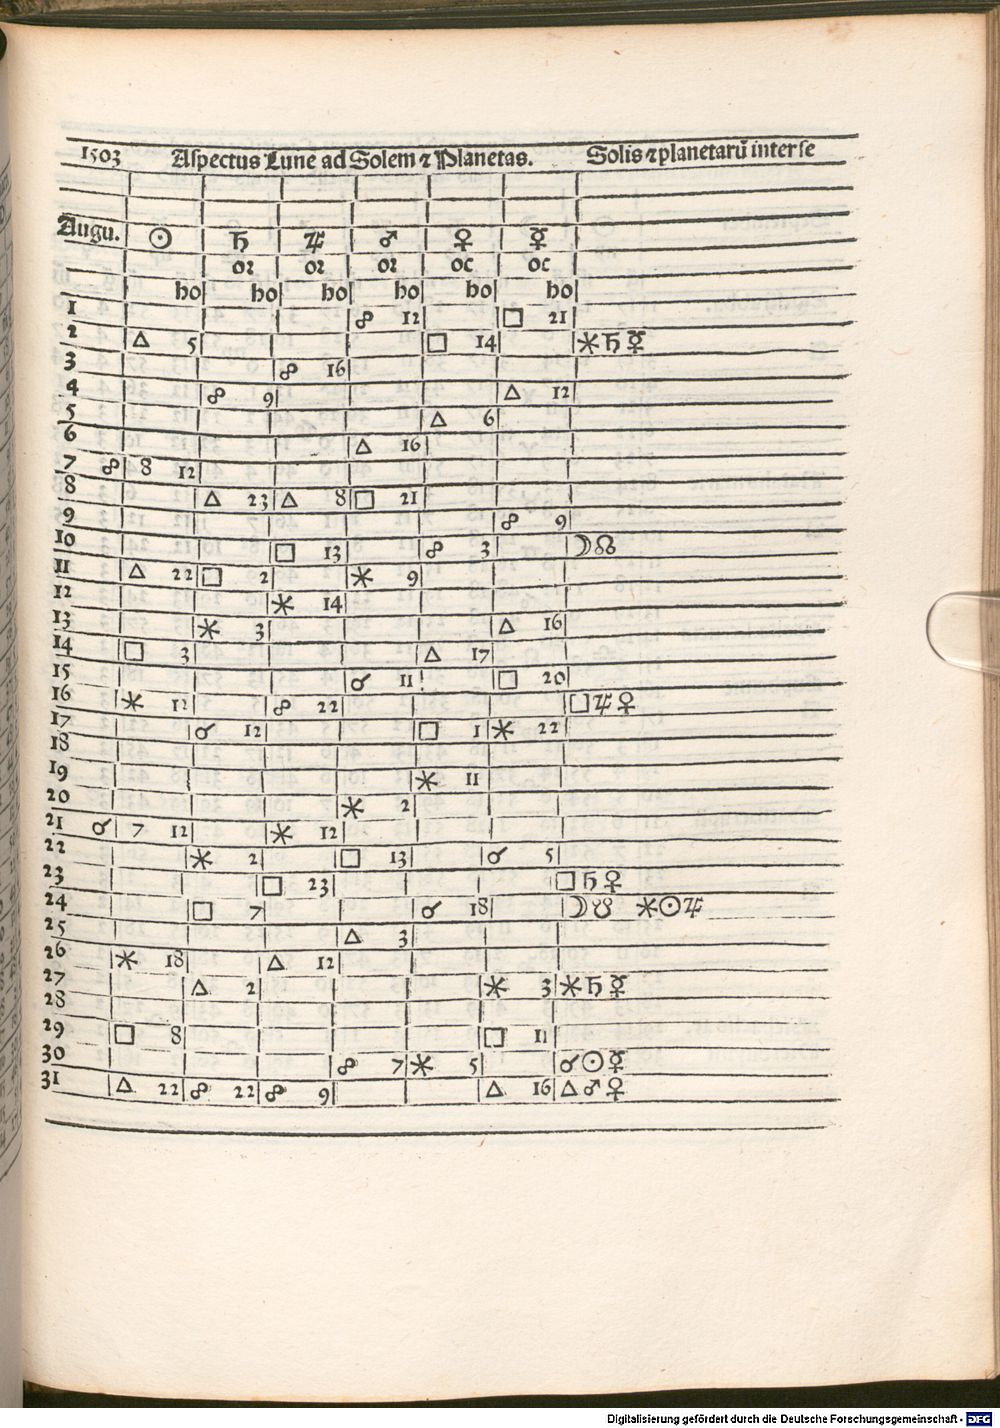 1503 Aspectus Lune ad Solem ⁊ Planetas. Solis ⁊ planetarū inter se
Augu. ☉ ♄ ♃ ♂ ♀ ☿
oꝛ oꝛ oꝛ oc oc
ho ho ho ho ho ho
1 ☍ 12 □ 21
2 △ 5 □ 14 ⚹ ♄ ☿
3 ☍ 16
4 ☍ 9 △ 12
5 △ 6
6 △ 16
7 ☍ 8 12
8 △ 23 △ 8 □ 21
9 ☍ 9
10 □ 13 ☍ 3 ☽ ☊
11 △ 22 □ 2 ⚹ 9
12 ⚹ 14
13 ⚹ 3 △ 16
14 □ 3 △ 17
15 ☌ 11 □ 20
16 ⚹ 12 ☍ 22 □ ♃ ♀
17 ☌ 12 □ 1 ⚹ 22
18
19 ⚹ 11
20 ⚹ 2
21 ☌ 7 12 ⚹ 12
22 ⚹ 2 □ 13 ☌ 5
23 □ 23 □ ♄ ♀
24 □ 7 ☌ 18 ☽ ☋ ⚹ ☉ ♃
25 △ 3
26 ⚹ 18 △ 12
27 △ 2 ⚹ 3 ⚹ ♄ ☿
28
29 □ 8 □ 11
30 ☍ 7 ⚹ 5 ☌ ☉ ☿
31 △ 22 ☍ 22 ☍ 9 △ 16 △ ♂ ♀
Digitalisierung gefördert durch die Deutsche Forschungsgemeinschaft - DFG